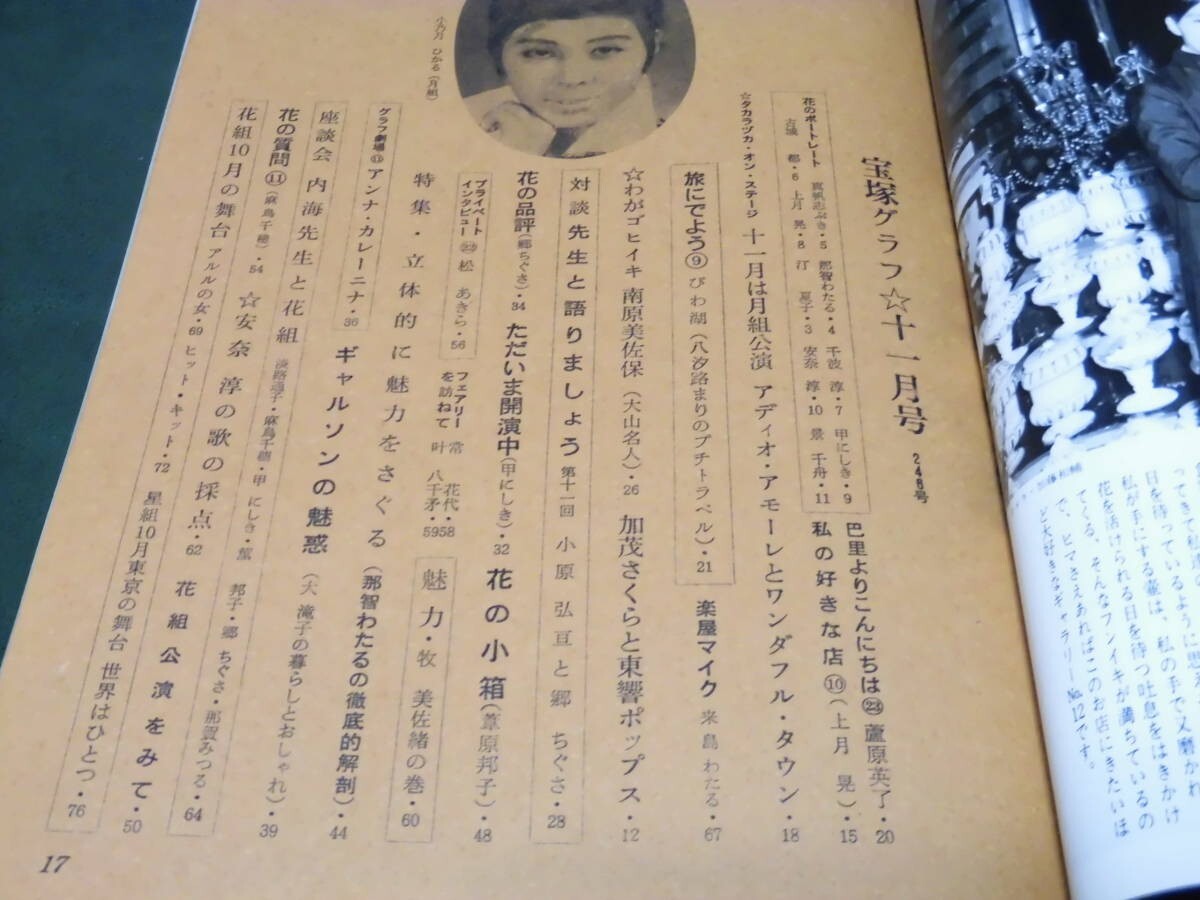 小乃月 ひかる（月組）
宝塚グラフ☆十一月号 246号
花のポートレート 真帆志ぶき・5 那智わたる・4 千波 淳・7 甲にしき・9
古城 都・6 上月 晃・8 汀 夏子・3 安奈 淳・10 景 千舟・11
巴里よりこんにちは㉓ 蘆原英了・20
私の好きな店⑩（上月 晃）・15
☆タカラヅカ・オン・ステージ 十一月は月組公演 アディオ・アモーレとワンダフル・タウン・18
旅にでよう⑨ びわ湖（八汐路まりのプチトラベル）・21
楽屋マイク 来島わたる・67
☆わがゴヒイキ 南原美佐保（大山名人）・26
加茂さくらと東響ポップス・12
対談先生と語りましょう 第十一回 小原弘亘と郷 ちぐさ・28
花の品評（郷ちぐさ）・34
ただいま開演中（甲にしき）・32
花の小箱（葦原邦子）・48
プライベートインタビュー㉓ 松 あきら・56
フェアリーを訪ねて 常 花代・58
叶 八千矛・59
魅力・牧 美佐緒の巻・60
特集・立体的に魅力をさぐる（那智わたるの徹底的解剖）・44
グラフ劇場⑬ アンナ・カレーニナ・36
ギャルソンの魅惑（大 滝子の暮らしとおしゃれ）・39
座談会 内海先生と花組 淡路通子・麻鳥千穂・甲 にしき・薫 邦子・郷 ちぐさ・那賀みつる・64
花の質問⑪（麻鳥千穂）・54
☆安奈 淳の歌の採点・62
花組公演をみて・50
花組10月の舞台 アルルの女・69 ヒット・キット・72
星組10月東京の舞台 世界はひとつ・76
17
日を待っているように思え
私が手にする壷は、私の手で又磨かれ
花を活けられる日を待つ吐息をはきかけ
てくる、そんなフンイキが満ちているの
で、ヒマさえあればこのお店にきたいほ
ど大好きなギャラリーNo.12です。